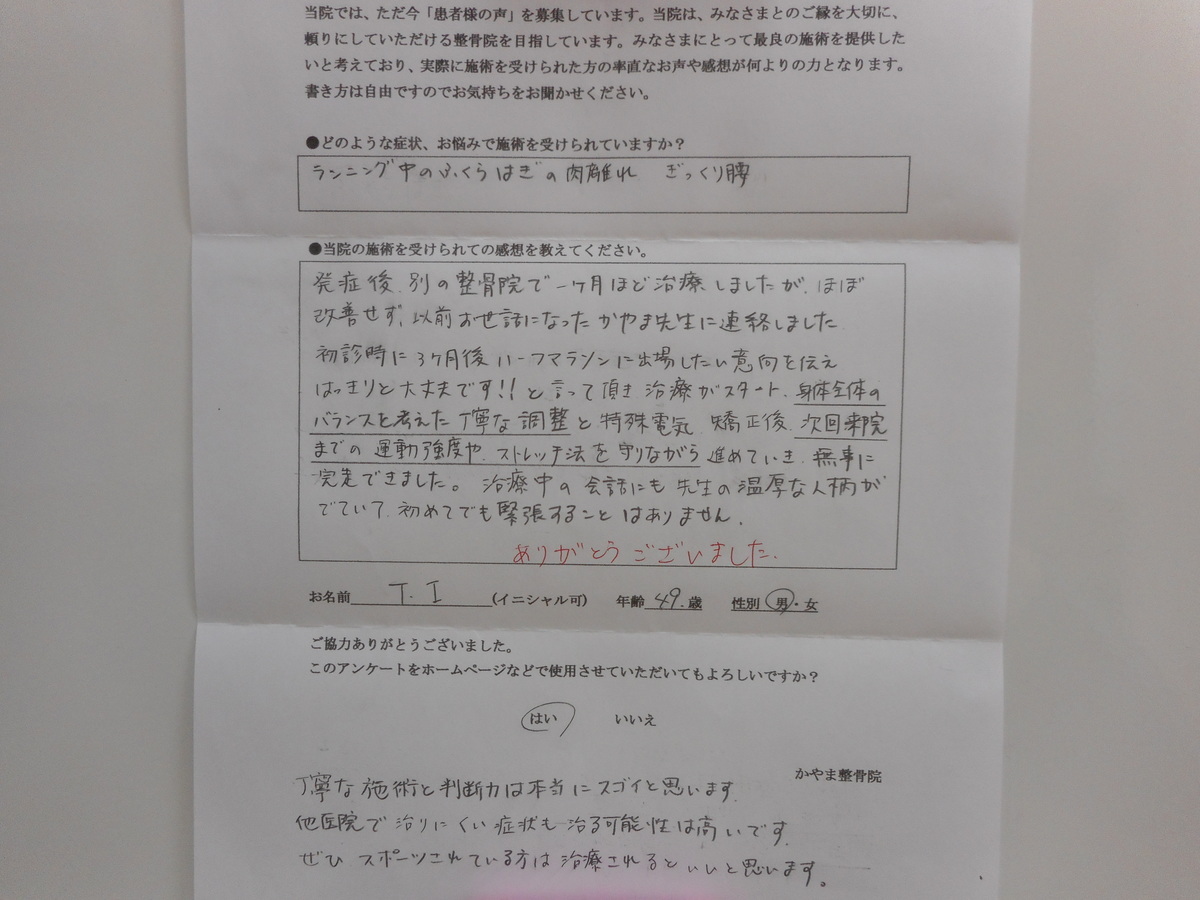 当院では、ただ今「患者様の声」を募集しています。当院は、みなさまとのご縁を大切に、
頼りにしていただける整骨院を目指しています。みなさまにとって最良の施術を提供した
いと考えており、実際に施術を受けられた方の率直なお声や感想が何よりの力となります。
書き方は自由ですのでお気持ちをお聞かせください。
●どのような症状、お悩みで施術を受けられていますか？
ランニング中のふくらはぎの肉離れ ぎっくり腰
●当院の施術を受けられての感想を教えてください。
発症後、別の整骨院で一ヶ月ほど治療しましたが、ほぼ
改善せず、以前お世話になったかやま先生に連絡しました
初診時に3ヶ月後ハーフマラソンに出場したい意向を伝え
はっきりと大丈夫です!!と言って頂き治療がスタート、身体全体の
バランスを考えた丁寧な調整と特殊電気、矯正後、次回来院
までの運動強度や、ストレッチ法を守りながら進めていき、無事に
完走できました。治療中の会話にも先生の温厚な人柄が
でていて、初めてでも緊張することはありません。
ありがとうございました。
お名前 T.I (イニシャル可) 年齢 49.歳 性別 男・女
ご協力ありがとうございました。
このアンケートをホームページなどで使用させていただいてもよろしいですか？
はい いいえ
かやま整骨院
丁寧な施術と判断力は本当にスゴイと思います。
他医院で治りにくい症状も治る可能性は高いです。
ぜひスポーツされている方は治療されるといいと思います。